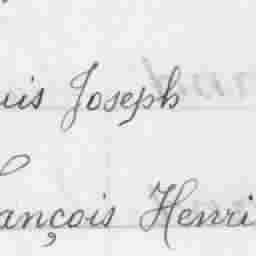 uis Joseph
ançois Henri